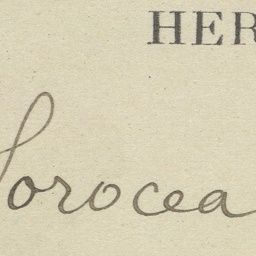 HER
Sorocea